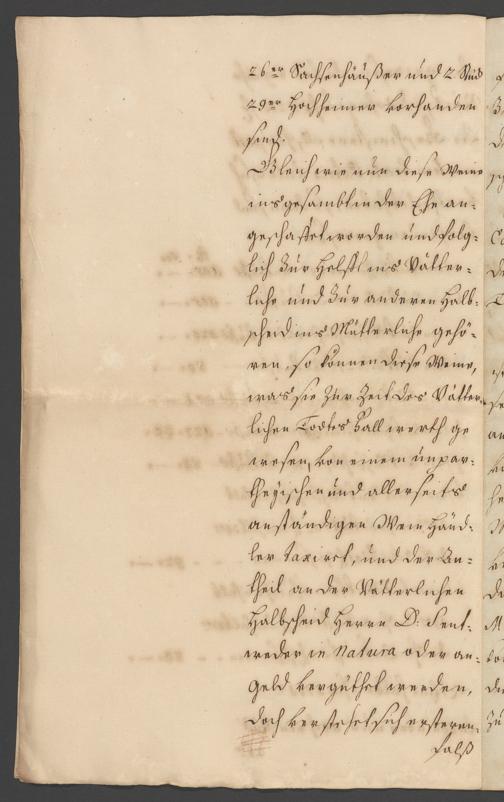 26er Sachsenhäußer und 2 Stück
29er Hochheimer vorhanden
sind.
Gleichwie nun diese Weine
insgesambt in der Ehe an-
geschaffet worden und folg-
lich zur Helfft ins Vätter-
liche und zur anderen Halb-
scheid ins Mütterliche gehö-
ren, so können diese Weine,
was sie zur Zeit des Vätter-
lichen Todtes Fall werth ge
wesen, von einem unpar-
theyischen und allerseits
anständigen Wein Händ-
ler taxiret, und der An-
theil an der Vätterlichen
Halbscheid Herrn D: Sent-
weder in natura oder an
Geld vergüthet werden,
doch verstehet sich ersteren-
falß